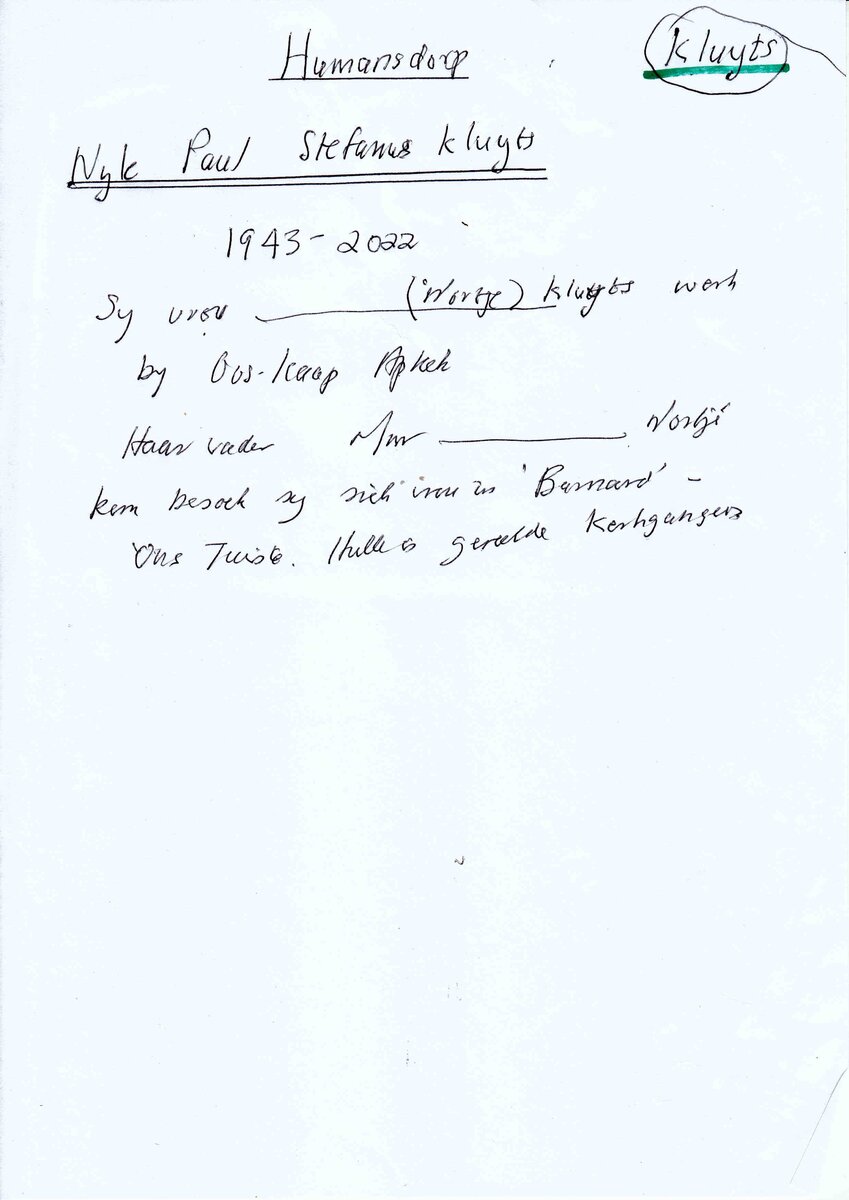 Humansdorp
Kluyts
Nyk Paul Stefanus Kluyts
1943-2022
Sy vrou (Nortje) Kluyts werk
by Oos-Kaap Apteek
Haar vader Mnr Nortjé
kom besoek sy siek vrou in 'Barnard' -
Ons Tuiste. Hulle is gereelde Kerkgangers